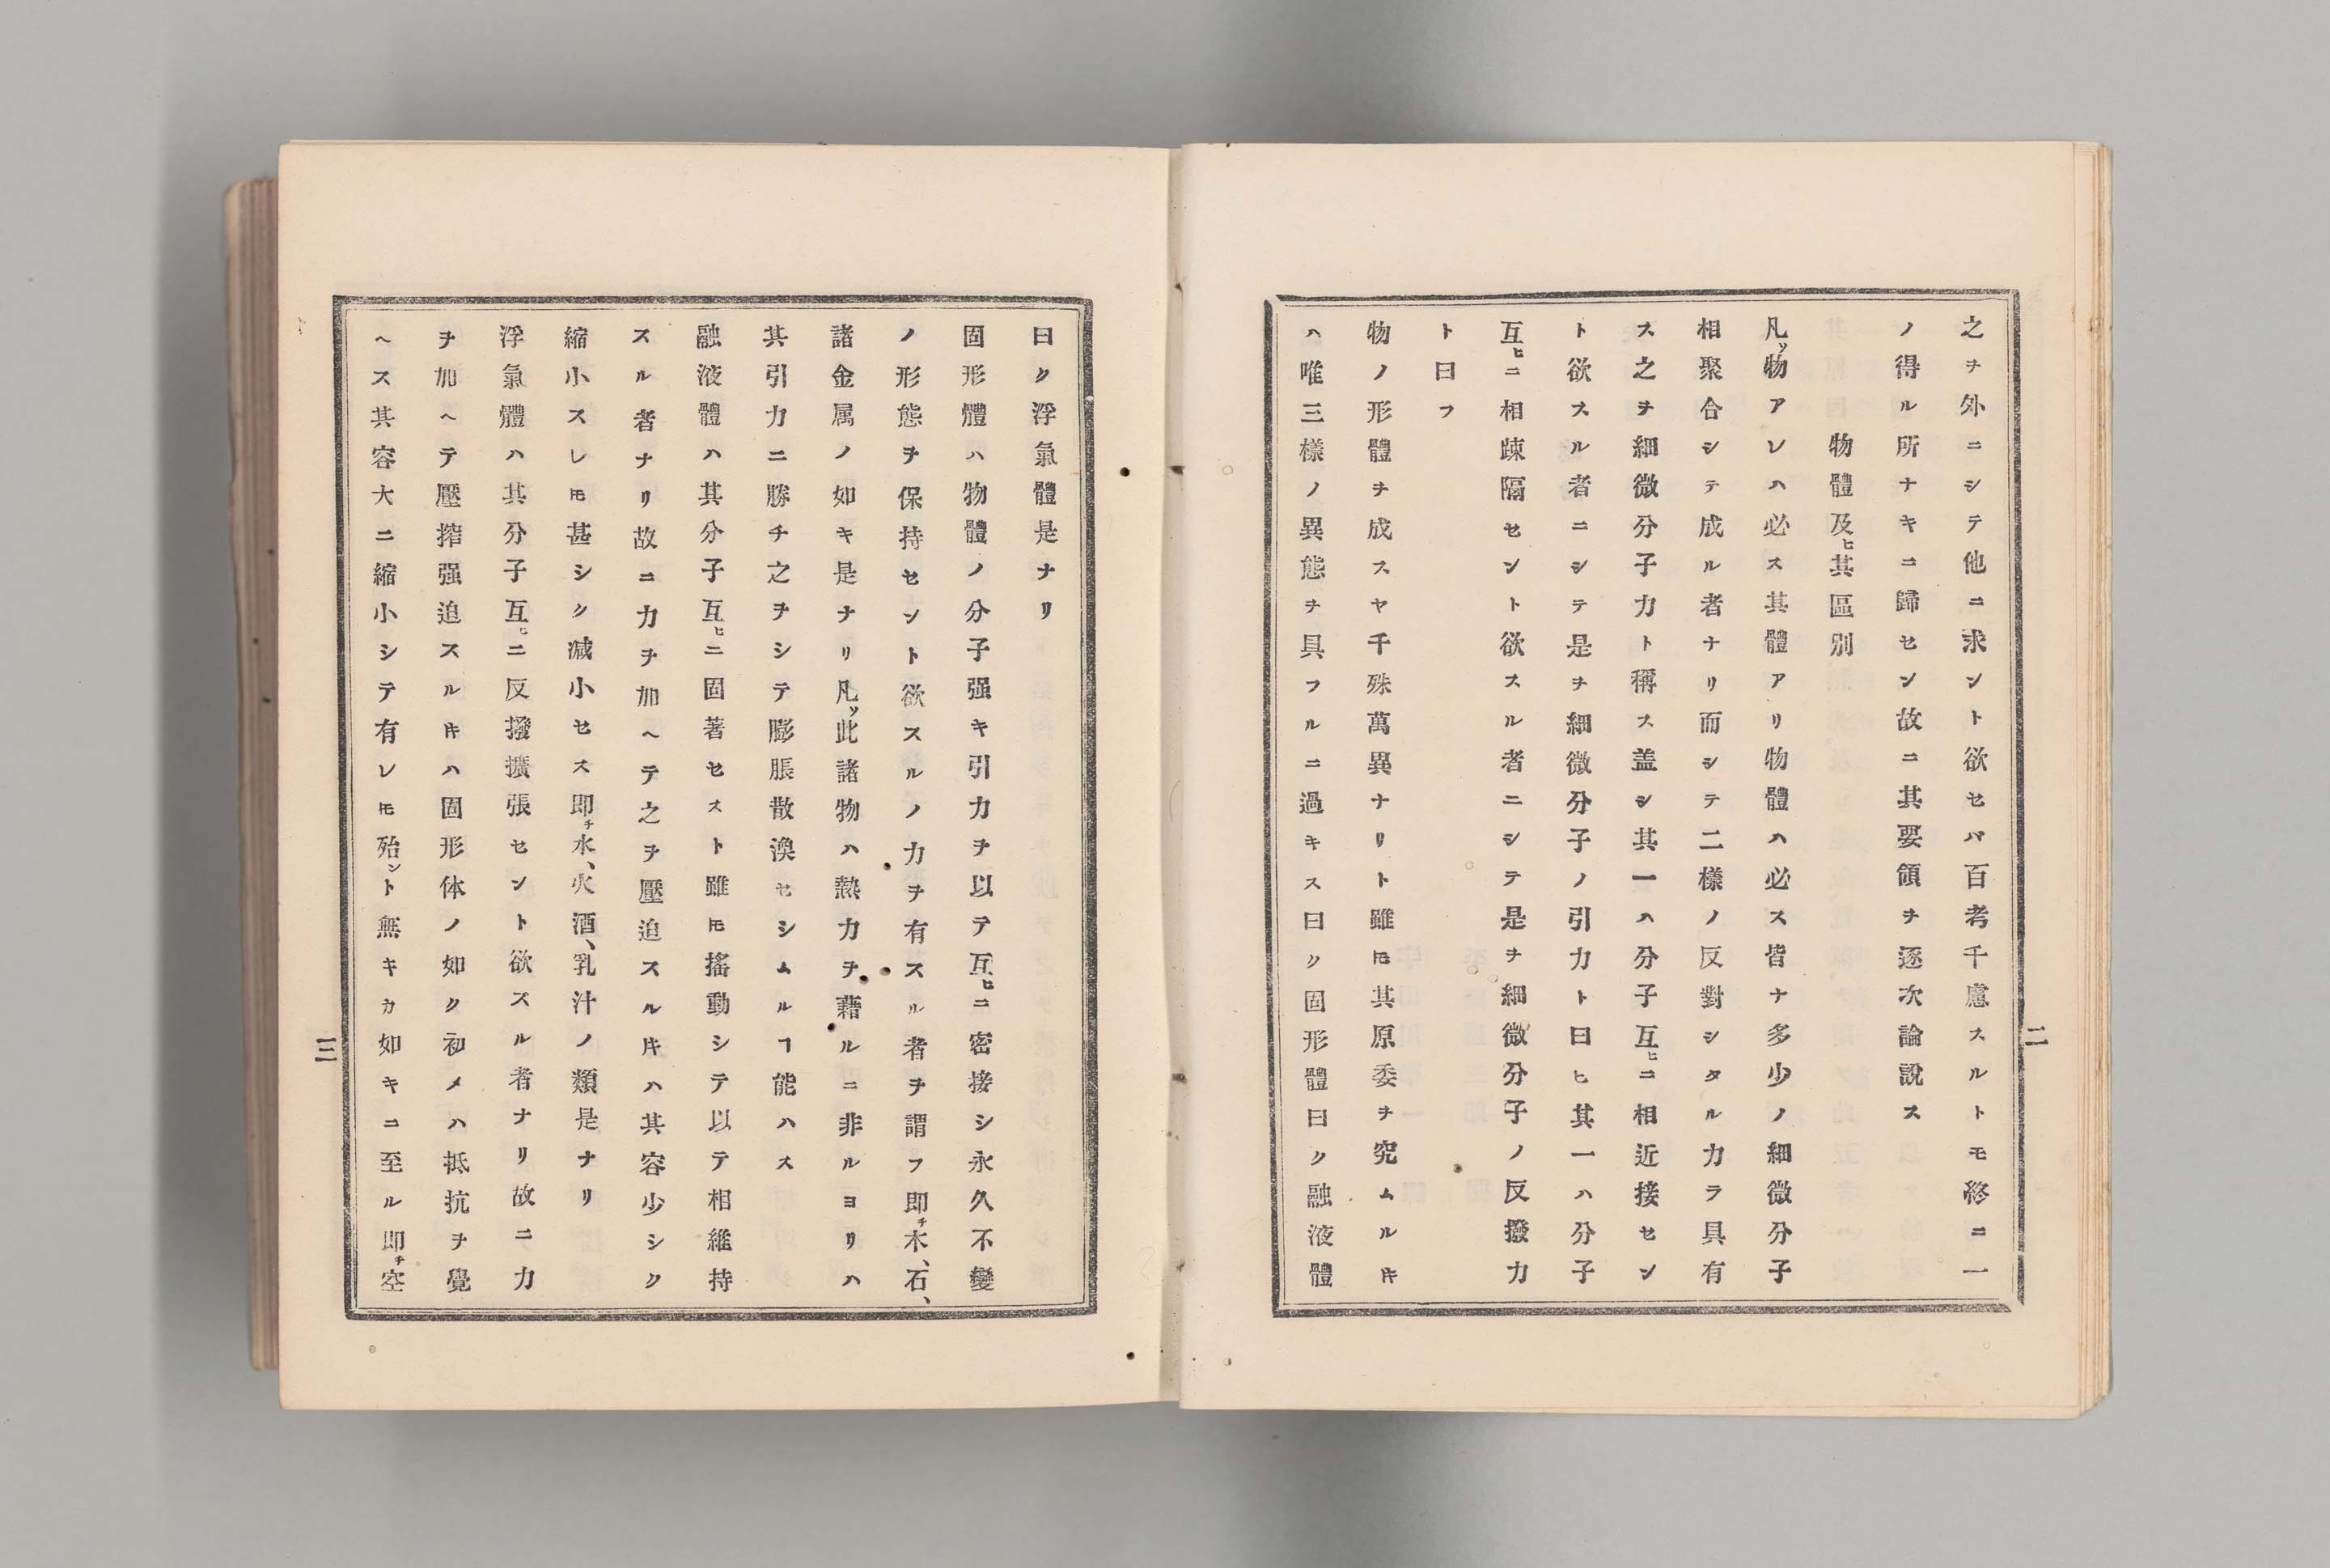 之ヲ外ニシテ他ニ求ント欲セバ百考千慮スルトモ終ニ一
ノ得ル所ナキニ歸セン故ニ其要領ヲ逐次論説ス
物體及ヒ其區別
凡ソ物アレハ必ス其體アリ物體ハ必ス皆ナ多少ノ細微分子
相聚合シテ成ル者ナリ而シテ二樣ノ反對シタル力ラ具有
ス之ヲ細微分子力ト稱ス盖シ其一ハ分子互ヒニ相近接セン
ト欲スル者ニシテ是ヲ細微分子ノ引力ト曰ヒ其一ハ分子
互ヒニ相疎隔セント欲スル者ニシテ是ヲ細微分子ノ反撥力
ト曰フ
物ノ形體ヲ成スヤ千殊萬異ナリト雖𪜈其原委ヲ究ムルキ
ハ唯三樣ノ異態ヲ具フルニ過キス曰ク固形體曰ク融液體
二
曰ク浮氣體是ナリ
固形體ハ物體ノ分子强キ引力ヲ以テ互ヒニ密接シ永久不變
ノ形態ヲ保持セント欲スルノ力ヲ有スル者ヲ謂フ即チ木、石、
諸金属ノ如キ是ナリ凡ソ此諸物ハ熱力ヲ藉ルニ非ルヨリハ
其引力ニ勝チ之ヲシテ膨脹散渙セシムルヿ能ハス
融液體ハ其分子互ヒニ固著セスト雖𪜈搖動シテ以テ相維持
スル者ナリ故ニ力ヲ加ヘテ之ヲ壓迫スルキハ其容少シク
縮小スレ𪜈甚シク减小セス即チ水、火酒、乳汁ノ類是ナリ
浮氣體ハ其分子互ヒニ反撥擴張セント欲スル者ナリ故ニ力
ヲ加ヘテ壓搾强迫スルキハ固形体ノ如ク初メハ抵抗ヲ覺
ヘス其容大ニ縮小シテ有レ𪜈殆ント無キカ如キニ至ル即チ空
三